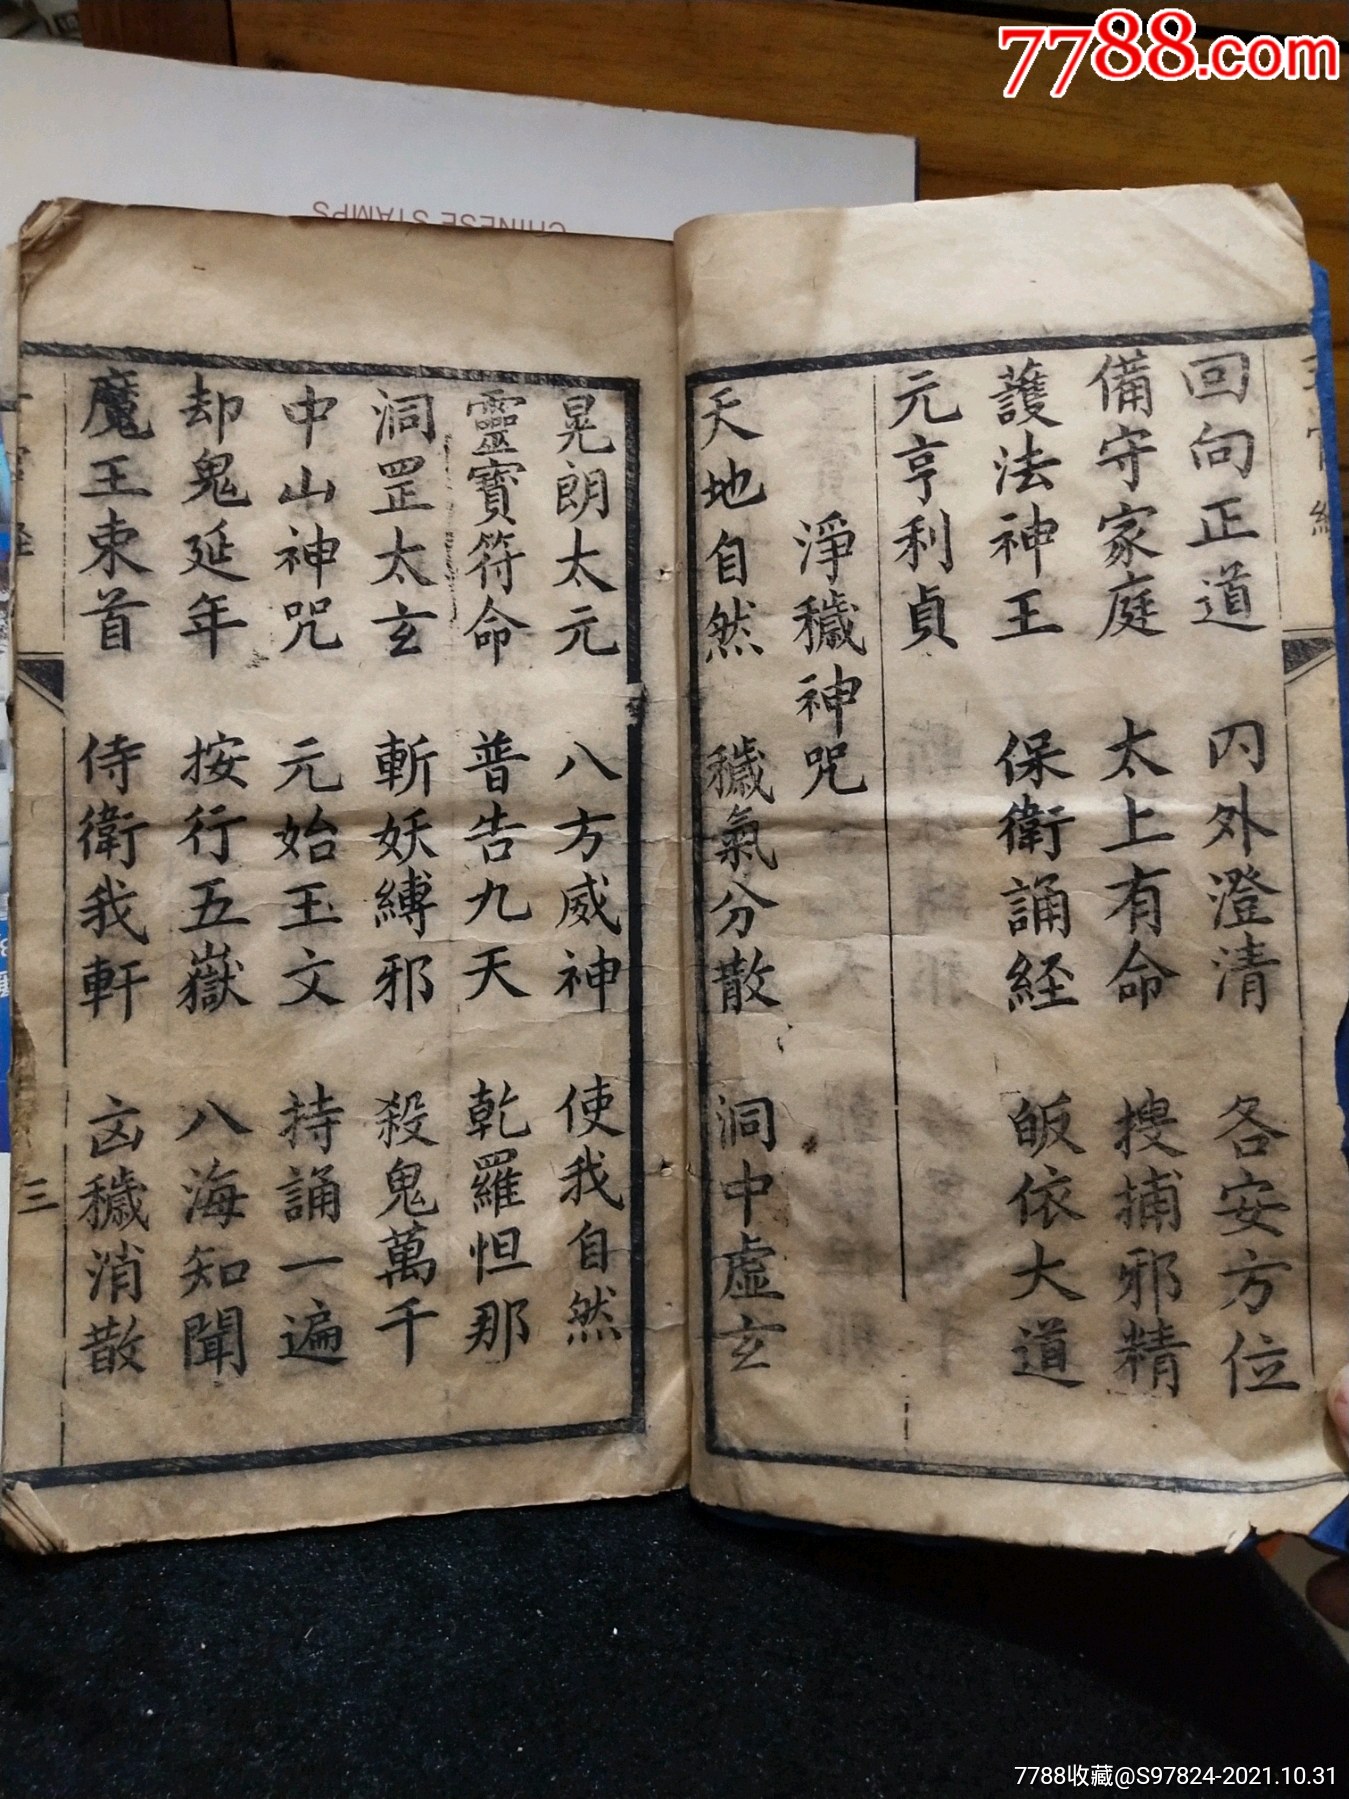 7788.com
CHINESE STAMPS
回向正道 内外澄清 各安方位
備守家庭 太上有命 搜捕邪精
護法神王 保衛誦経 皈依大道
元亨利貞
淨穢神咒
天地自然 穢氣分散 洞中虛玄
晃朗太元 八方威神 使我自然
靈寶符命 普告九天 乾羅怛那
洞罡太玄 斬妖縛邪 殺鬼萬千
中山神咒 元始玉文 持誦一遍
却鬼延年 按行五嶽 八海知聞
魔王束首 侍衛我軒 凶穢消散
三
7788收藏@S97824-2021.10.31